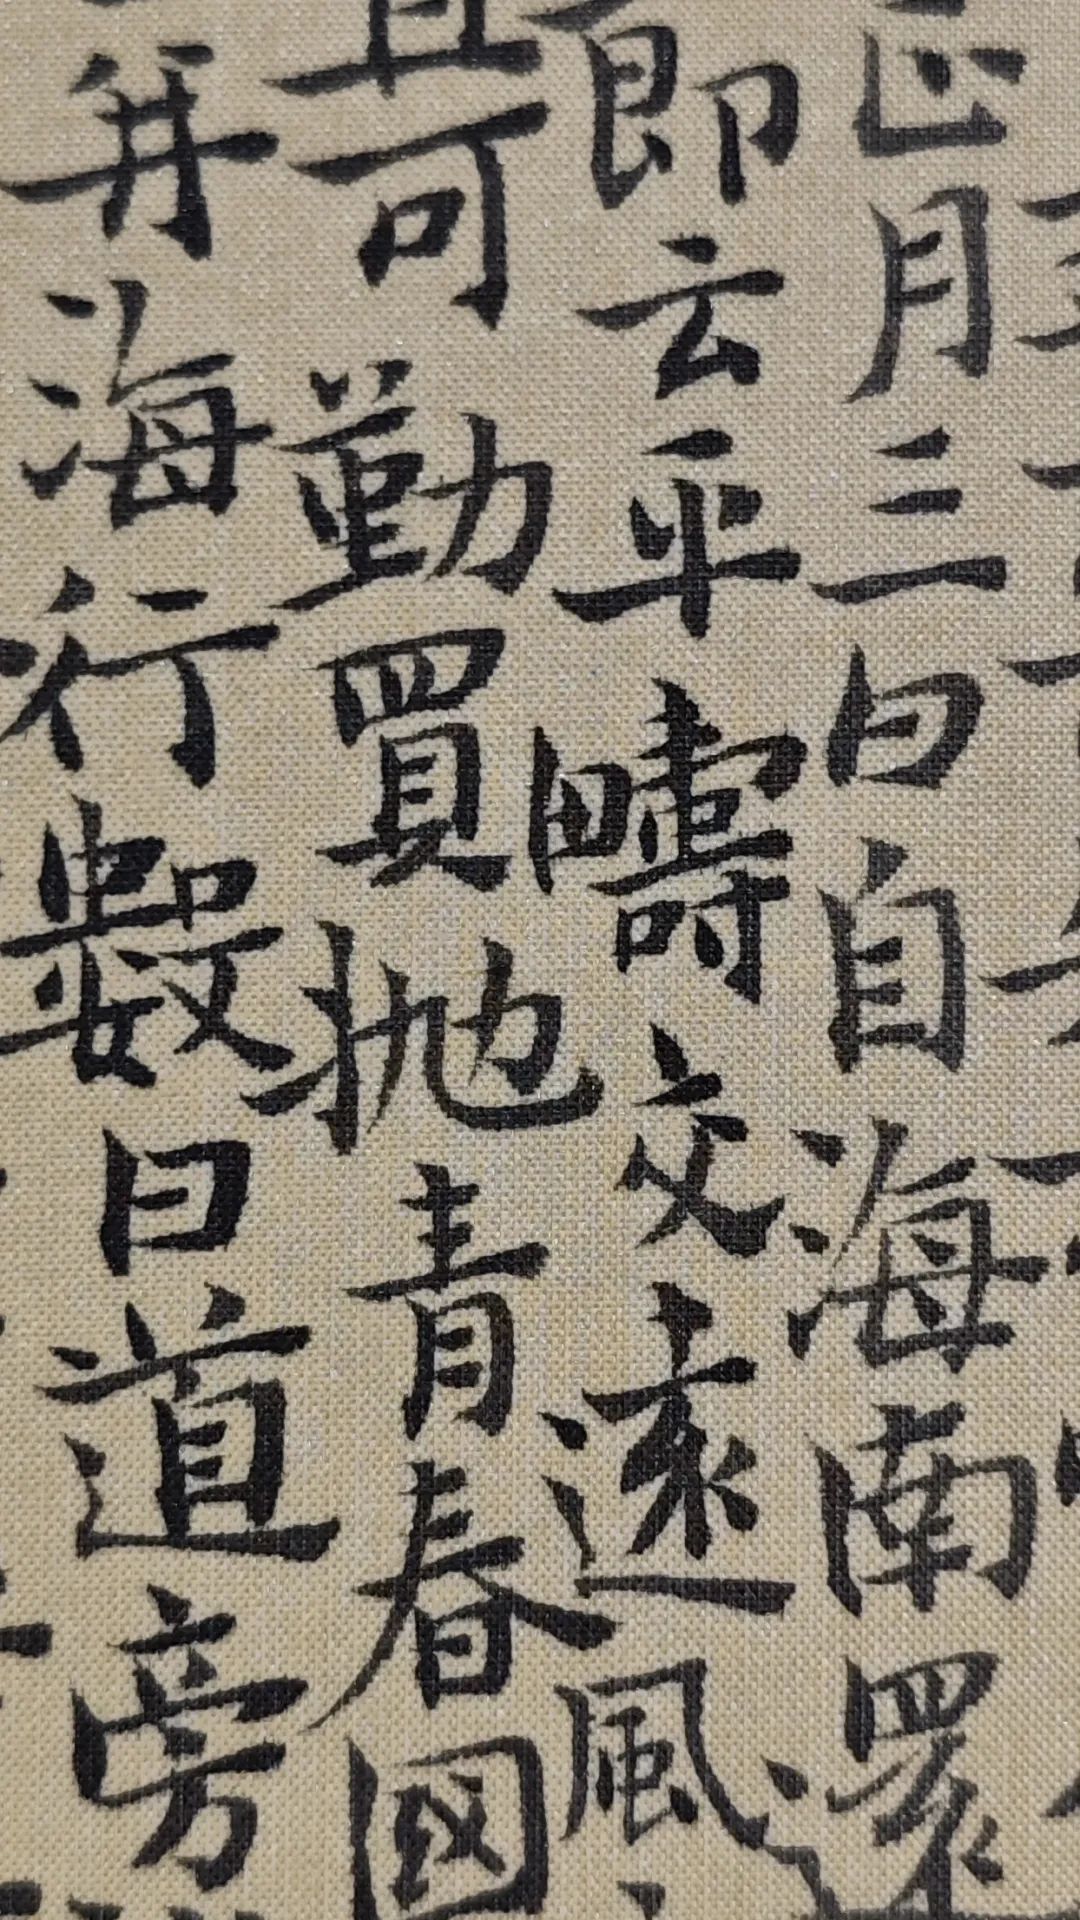 正月三日自海南還
即云平疇交遠風
且可勤買抛青春國
并海行數日道旁